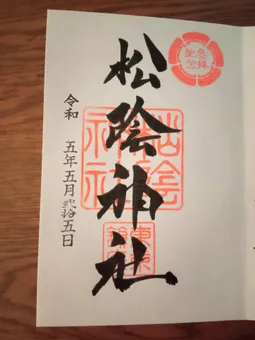 参拝
記念
松陰神社
松陰
神社
令和 五年五月弐拾五日